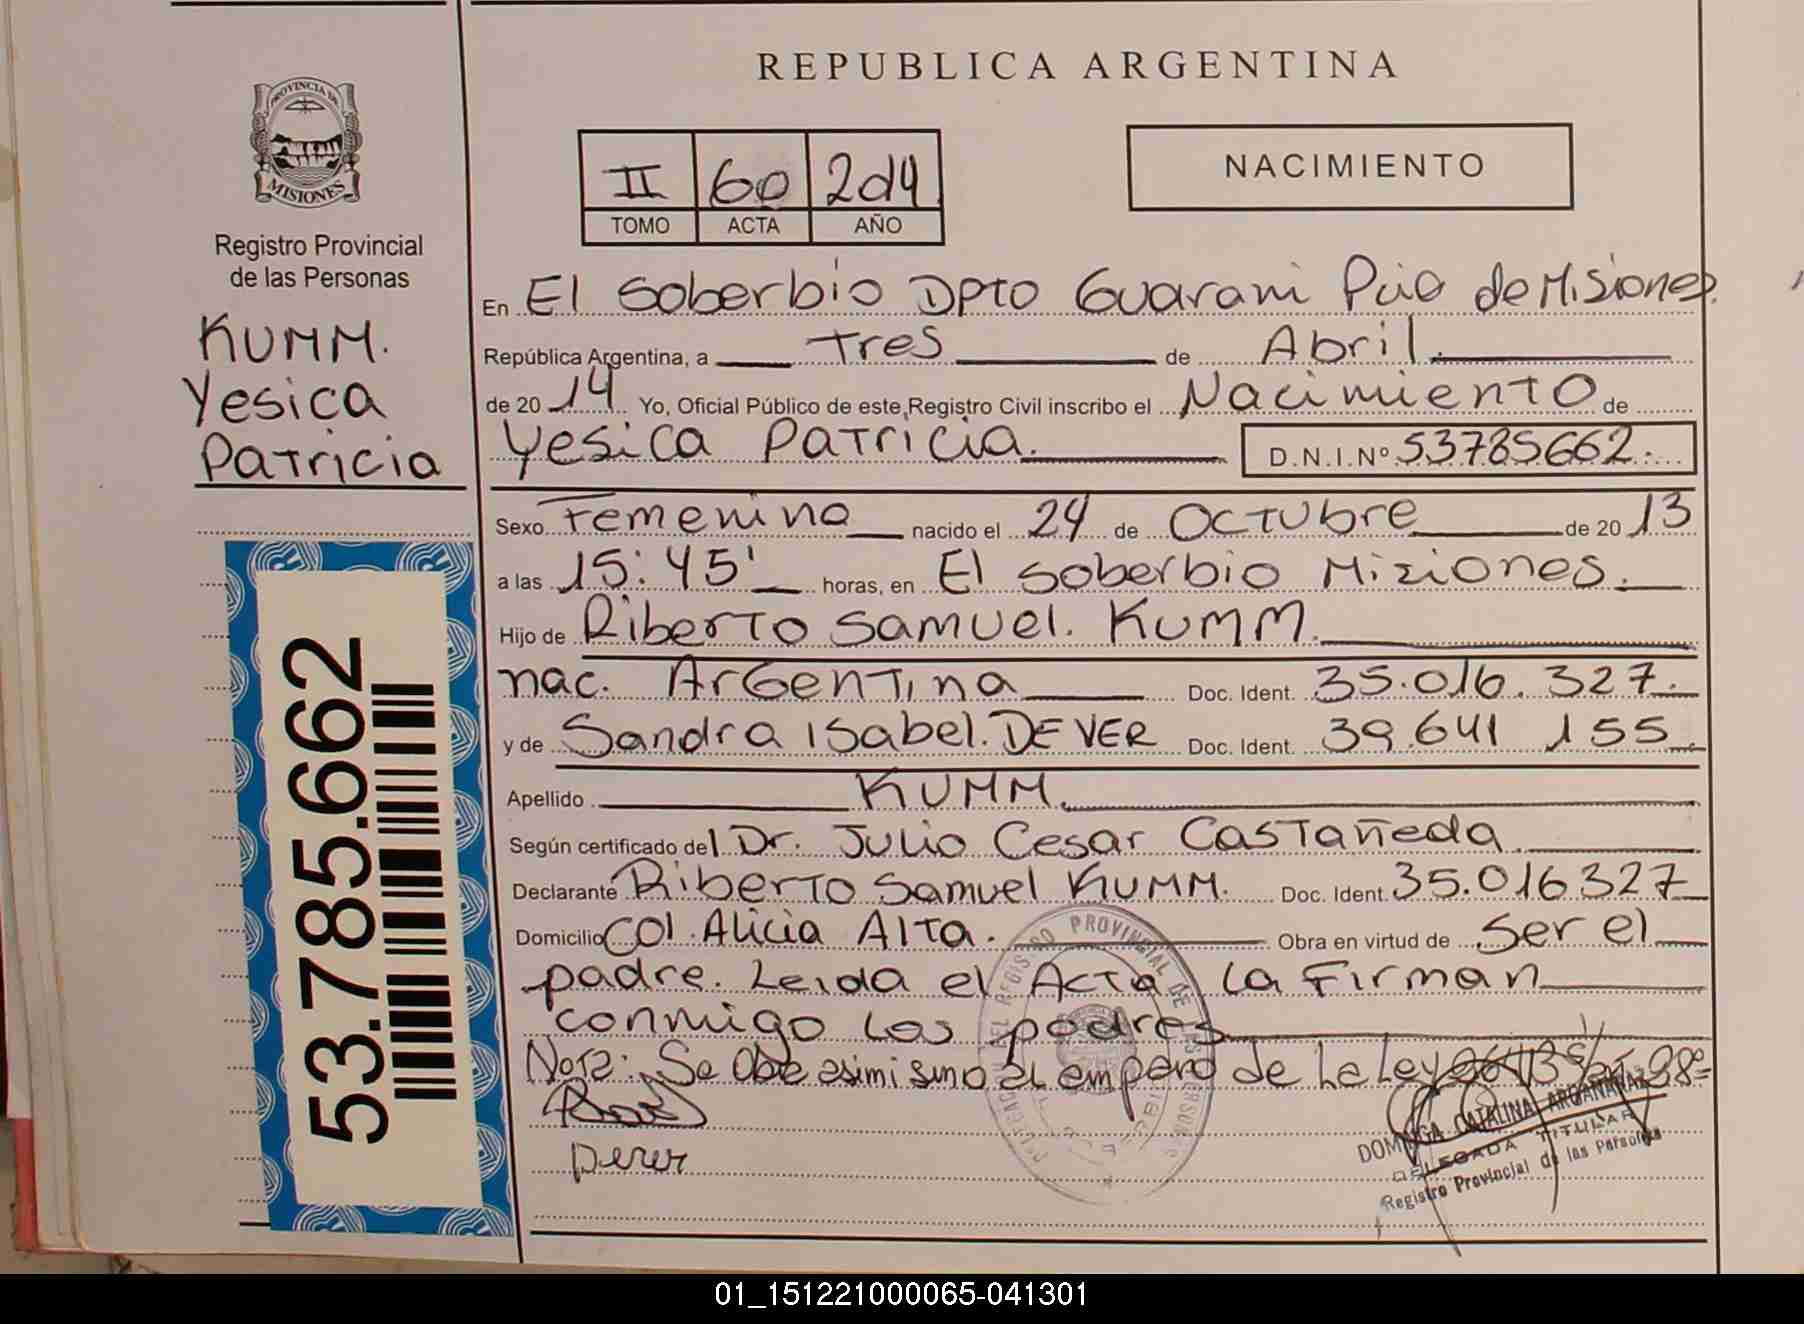 REPUBLICA ARGENTINA
PROVINCIA DE
MISIONES
Registro Provincial
de las Personas
KUMM.
Yesica
Patricia
53.785.662
II 60 2014
TOMO ACTA AÑO
NACIMIENTO
En El Soberbio Dpto Guarani Pcia de Misiones.
República Argentina, a Tres de Abril.
de 20 14 Yo, Oficial Público de este Registro Civil inscribo el Nacimiento de
Yesica Patricia. D.N.I.Nº 53785662.
Sexo Femenino nacido el 24 de Octubre de 20 13
a las 15:45' horas, en El Soberbio Misiones.
Hijo de Riberto Samuel. KUMM.
nac. Argentina Doc. Ident. 35.016.327.
y de Sandra Isabel. DEVER Doc. Ident. 39.641 155
Apellido KUMM.
Según certificado del Dr. Julio Cesar Castañeda.
Declarante Riberto Samuel KUMM. Doc. Ident. 35.016327
Domicilio Col. Alicia Alta. Obra en virtud de Ser el
padre. Leida el Acta La Firman
conmigo los padres
Nota: Se Obe asimismo al emparo de La Ley
Dever
REGISTRO PROVINCIAL DE
DOMINGA CATALINA
DELEGADA TITULAR
Registro Provincial de las Personas
01_151221000065-041301